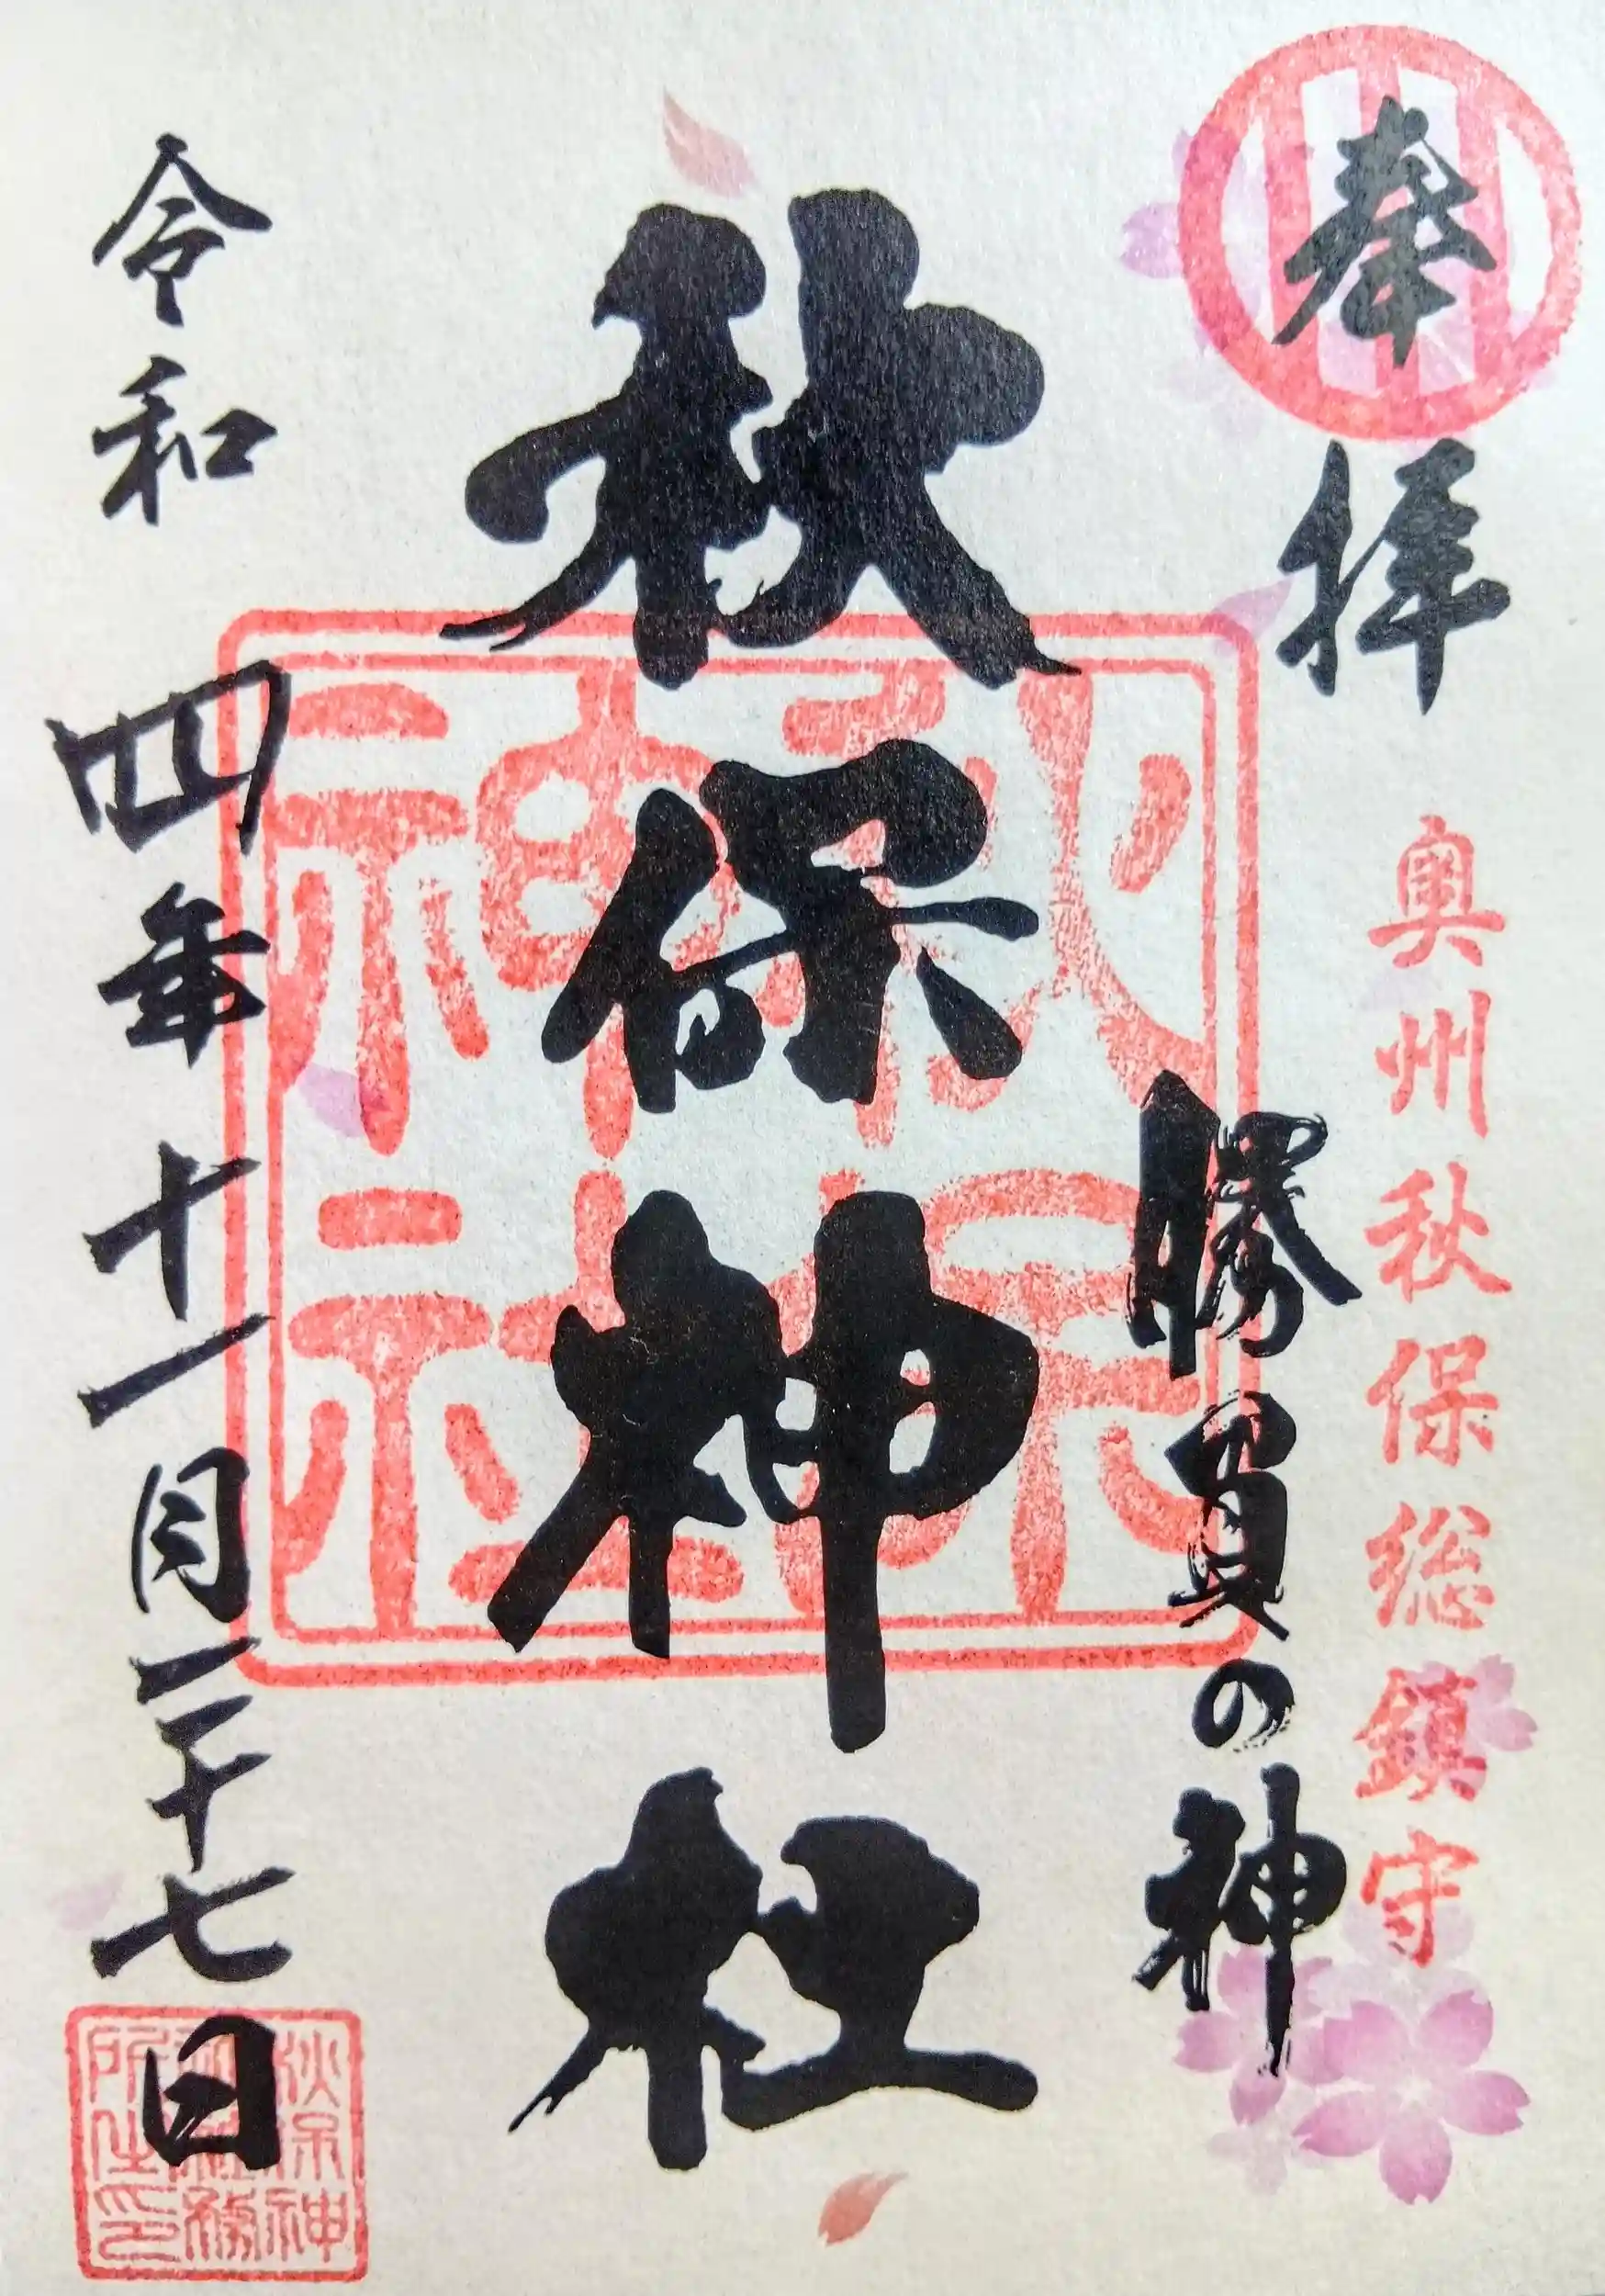 奉拝
奥州秋保総鎮守
勝負の神
秋保神社
秋保神社
令和四年十一月二十七日
秋保神社務所之印